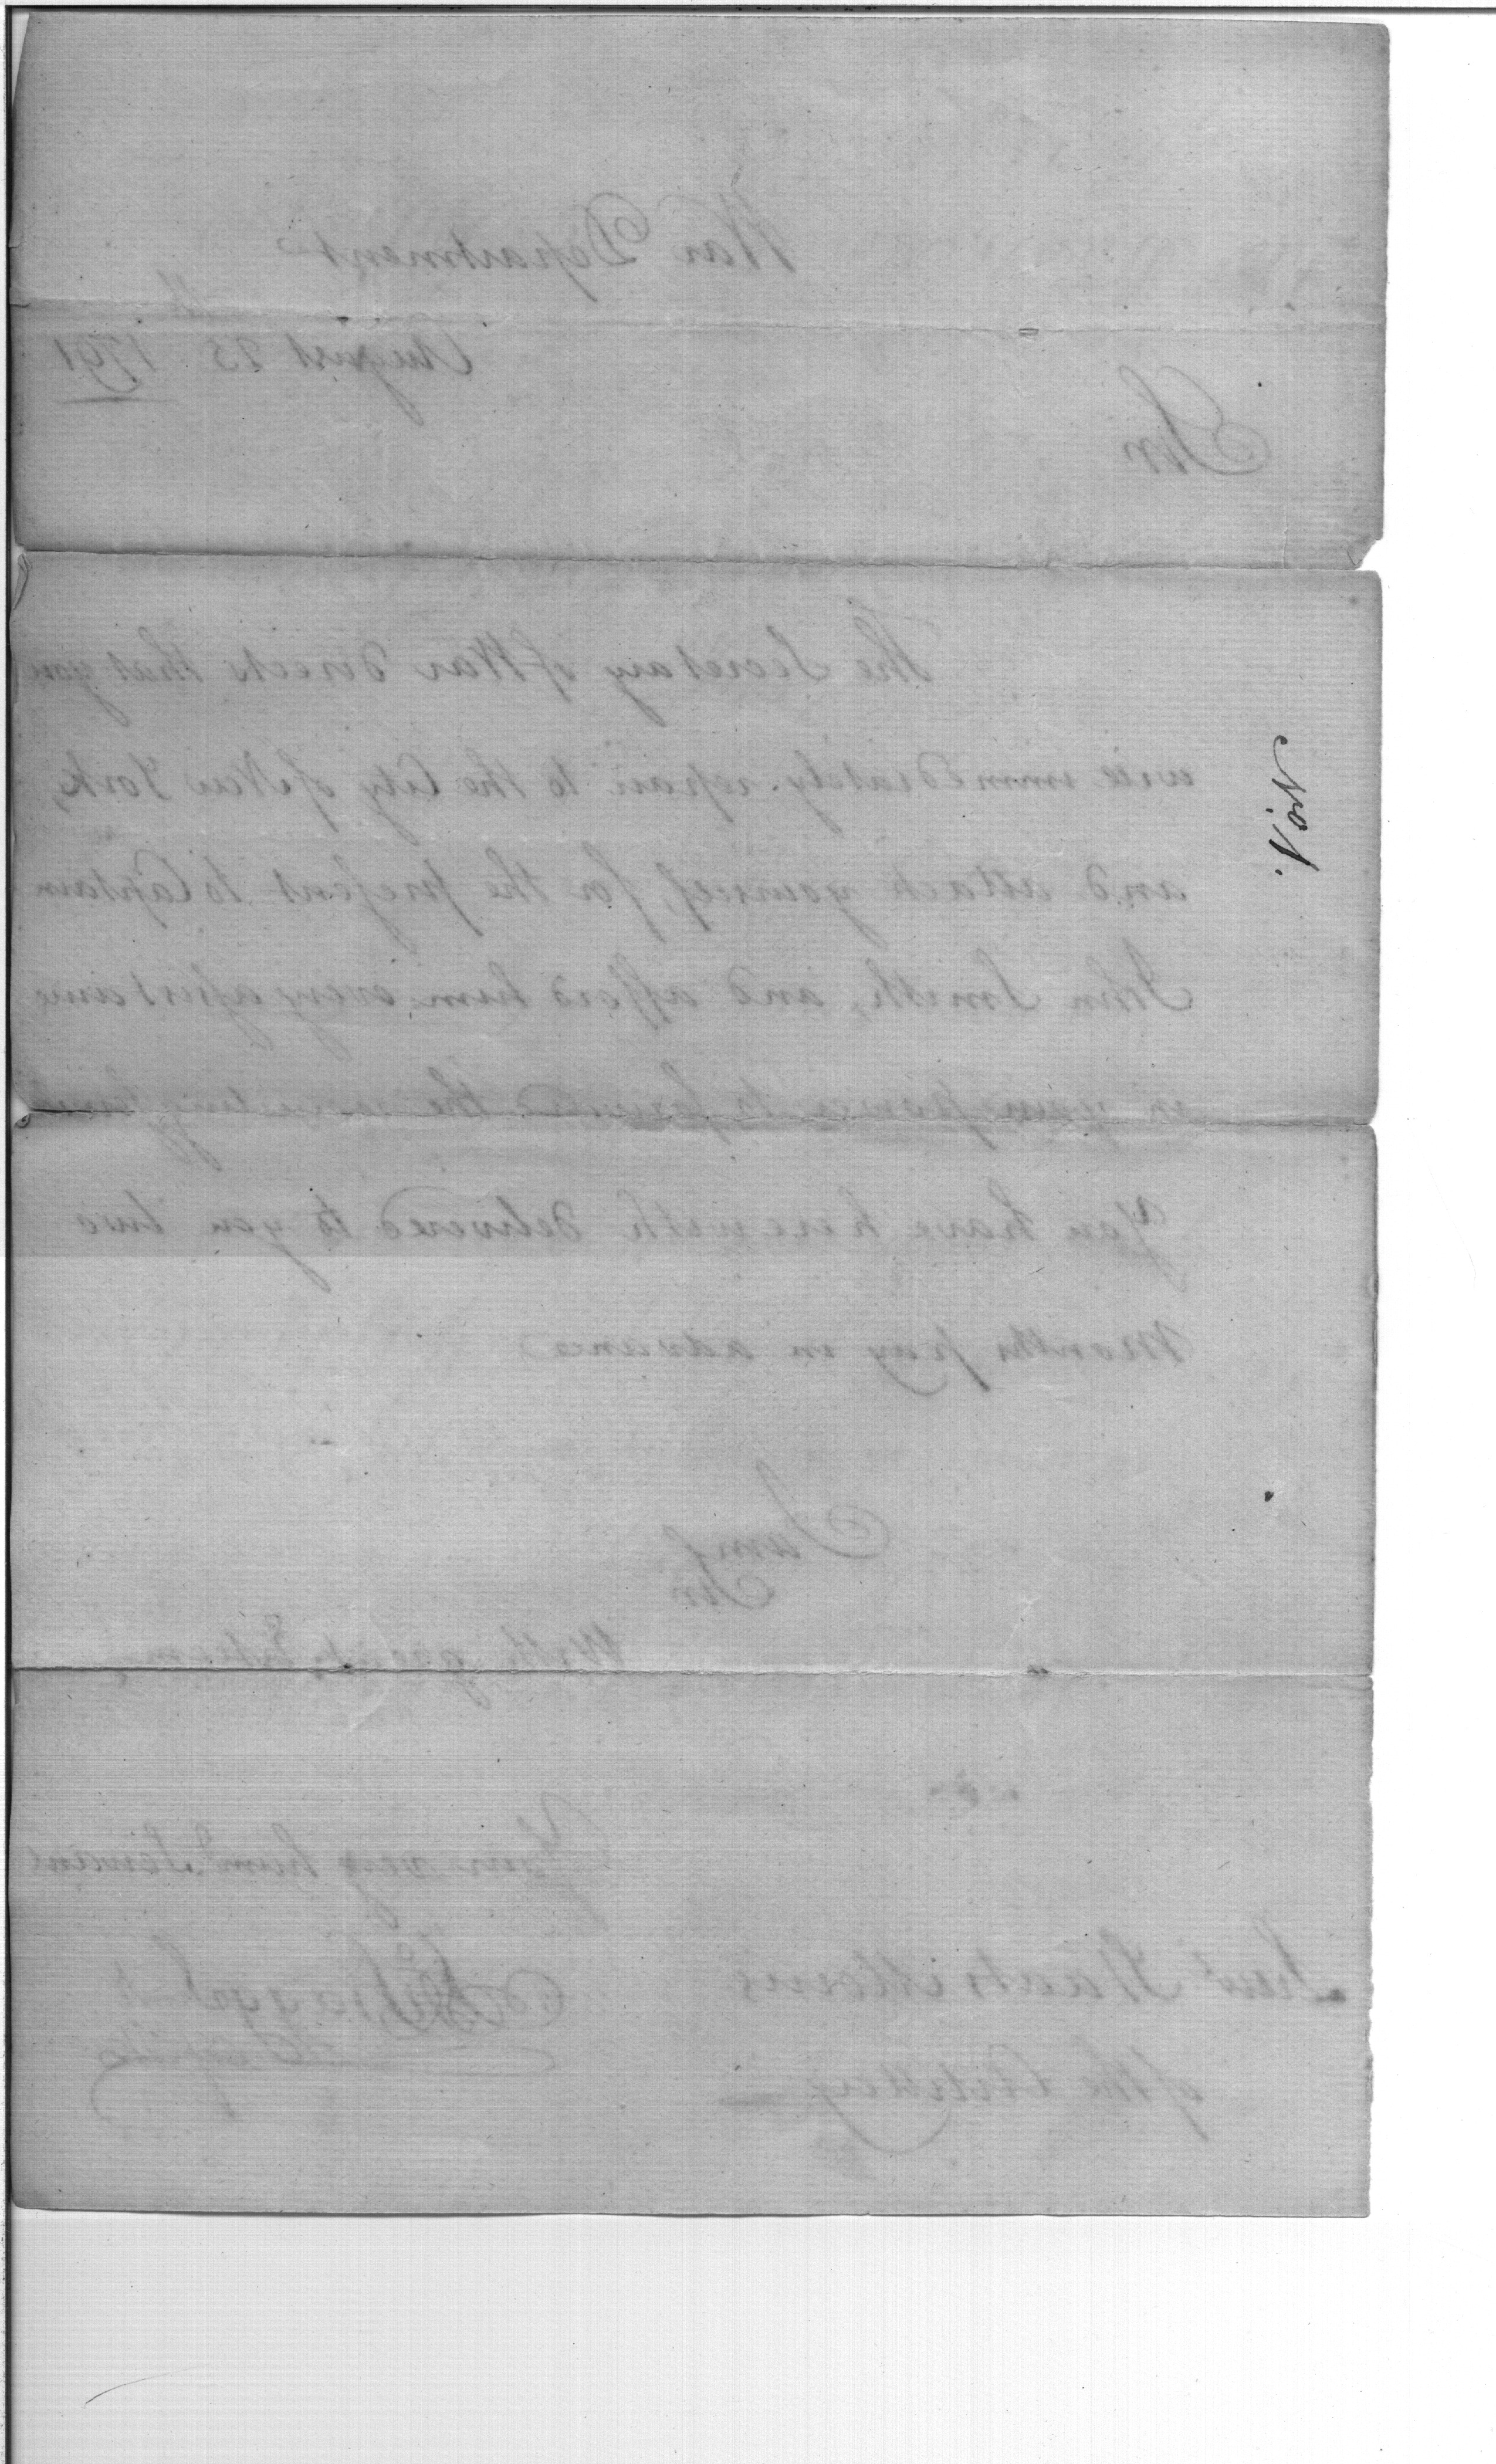 War Department
August 25th 1791
Sir
The Secretary of War directs that you
will immediately repair to the City of New York,
and attach yourself, for the present to Captain
John Smith, and afford him every assistance
in your power to forward the recruiting
You have herewith delivered to you two
Months pay in advance
I am
Sir
With great Esteem,
Your very hum. Servant
Lieut Staats Morris
of the Artillery
No. 1.